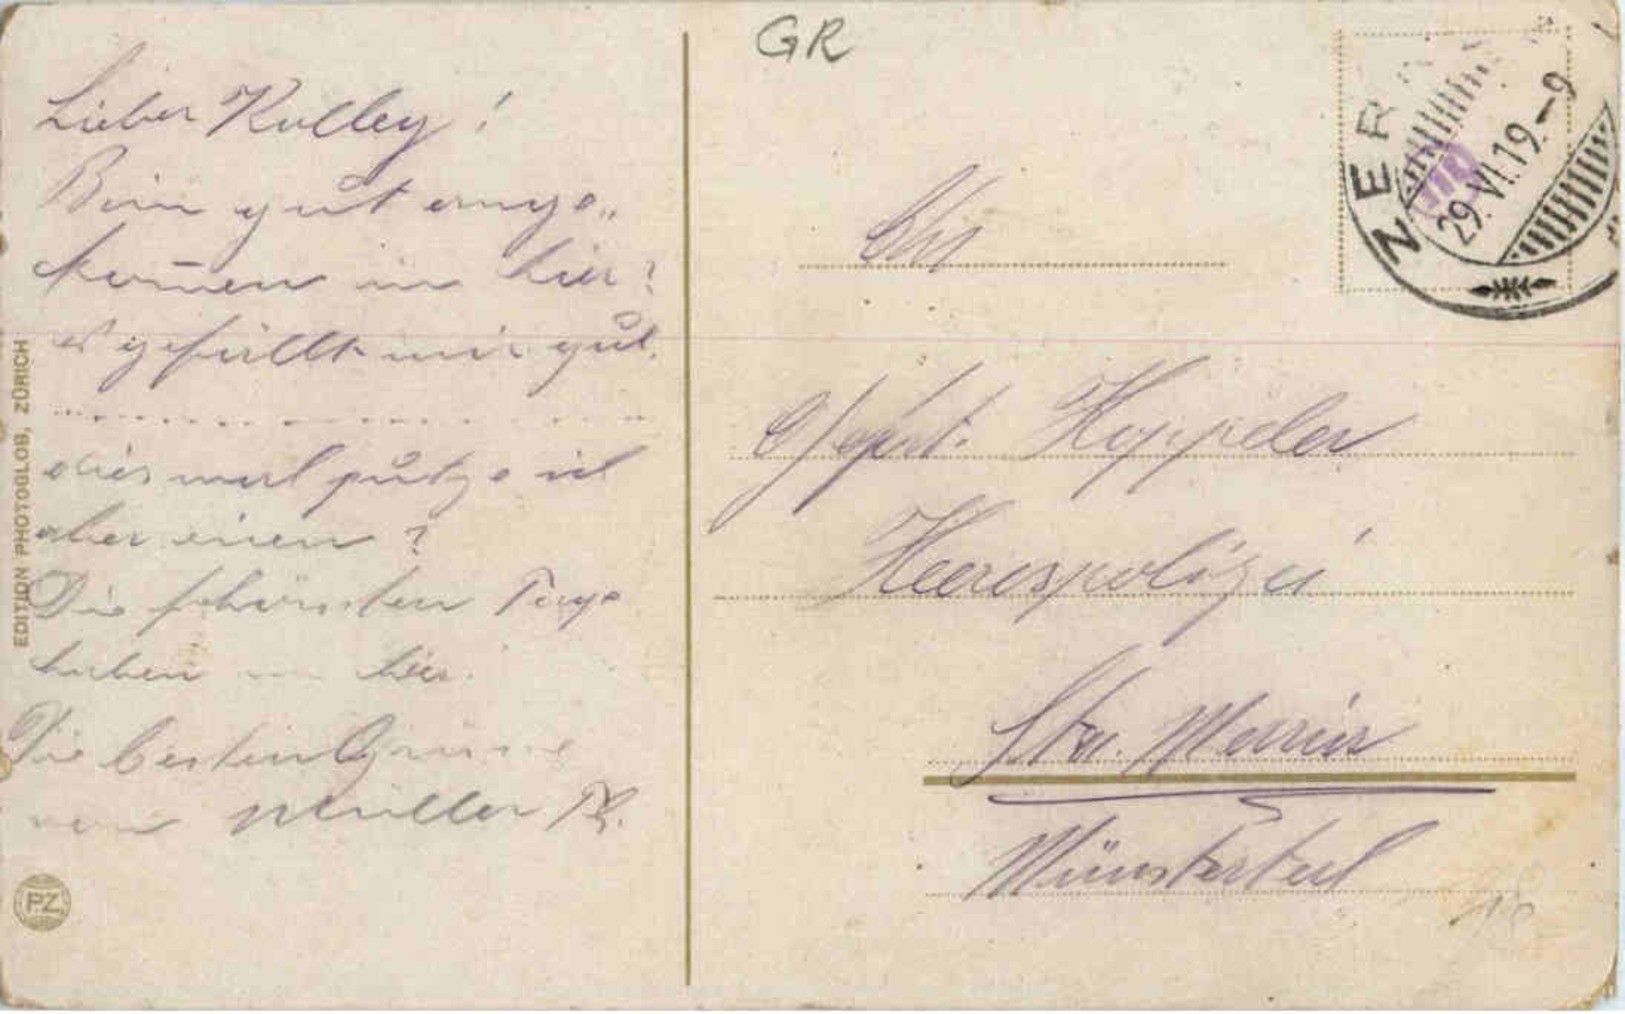 GR
Lieber Kolley!
Bin gut ange„
kom̄en in hier?
es gefällt mir gut.
dies mal putze ich
aber einen?
Die schönsten Tage
haben hier.
Die besten Grüsse
von Müller
EDITION PHOTOGLOB, ZÜRICH
PZ
ZER
29.VI.19.–9
An
Gefrt. Keppeler
Heerespolizei
Sta. Maria
Münstertal